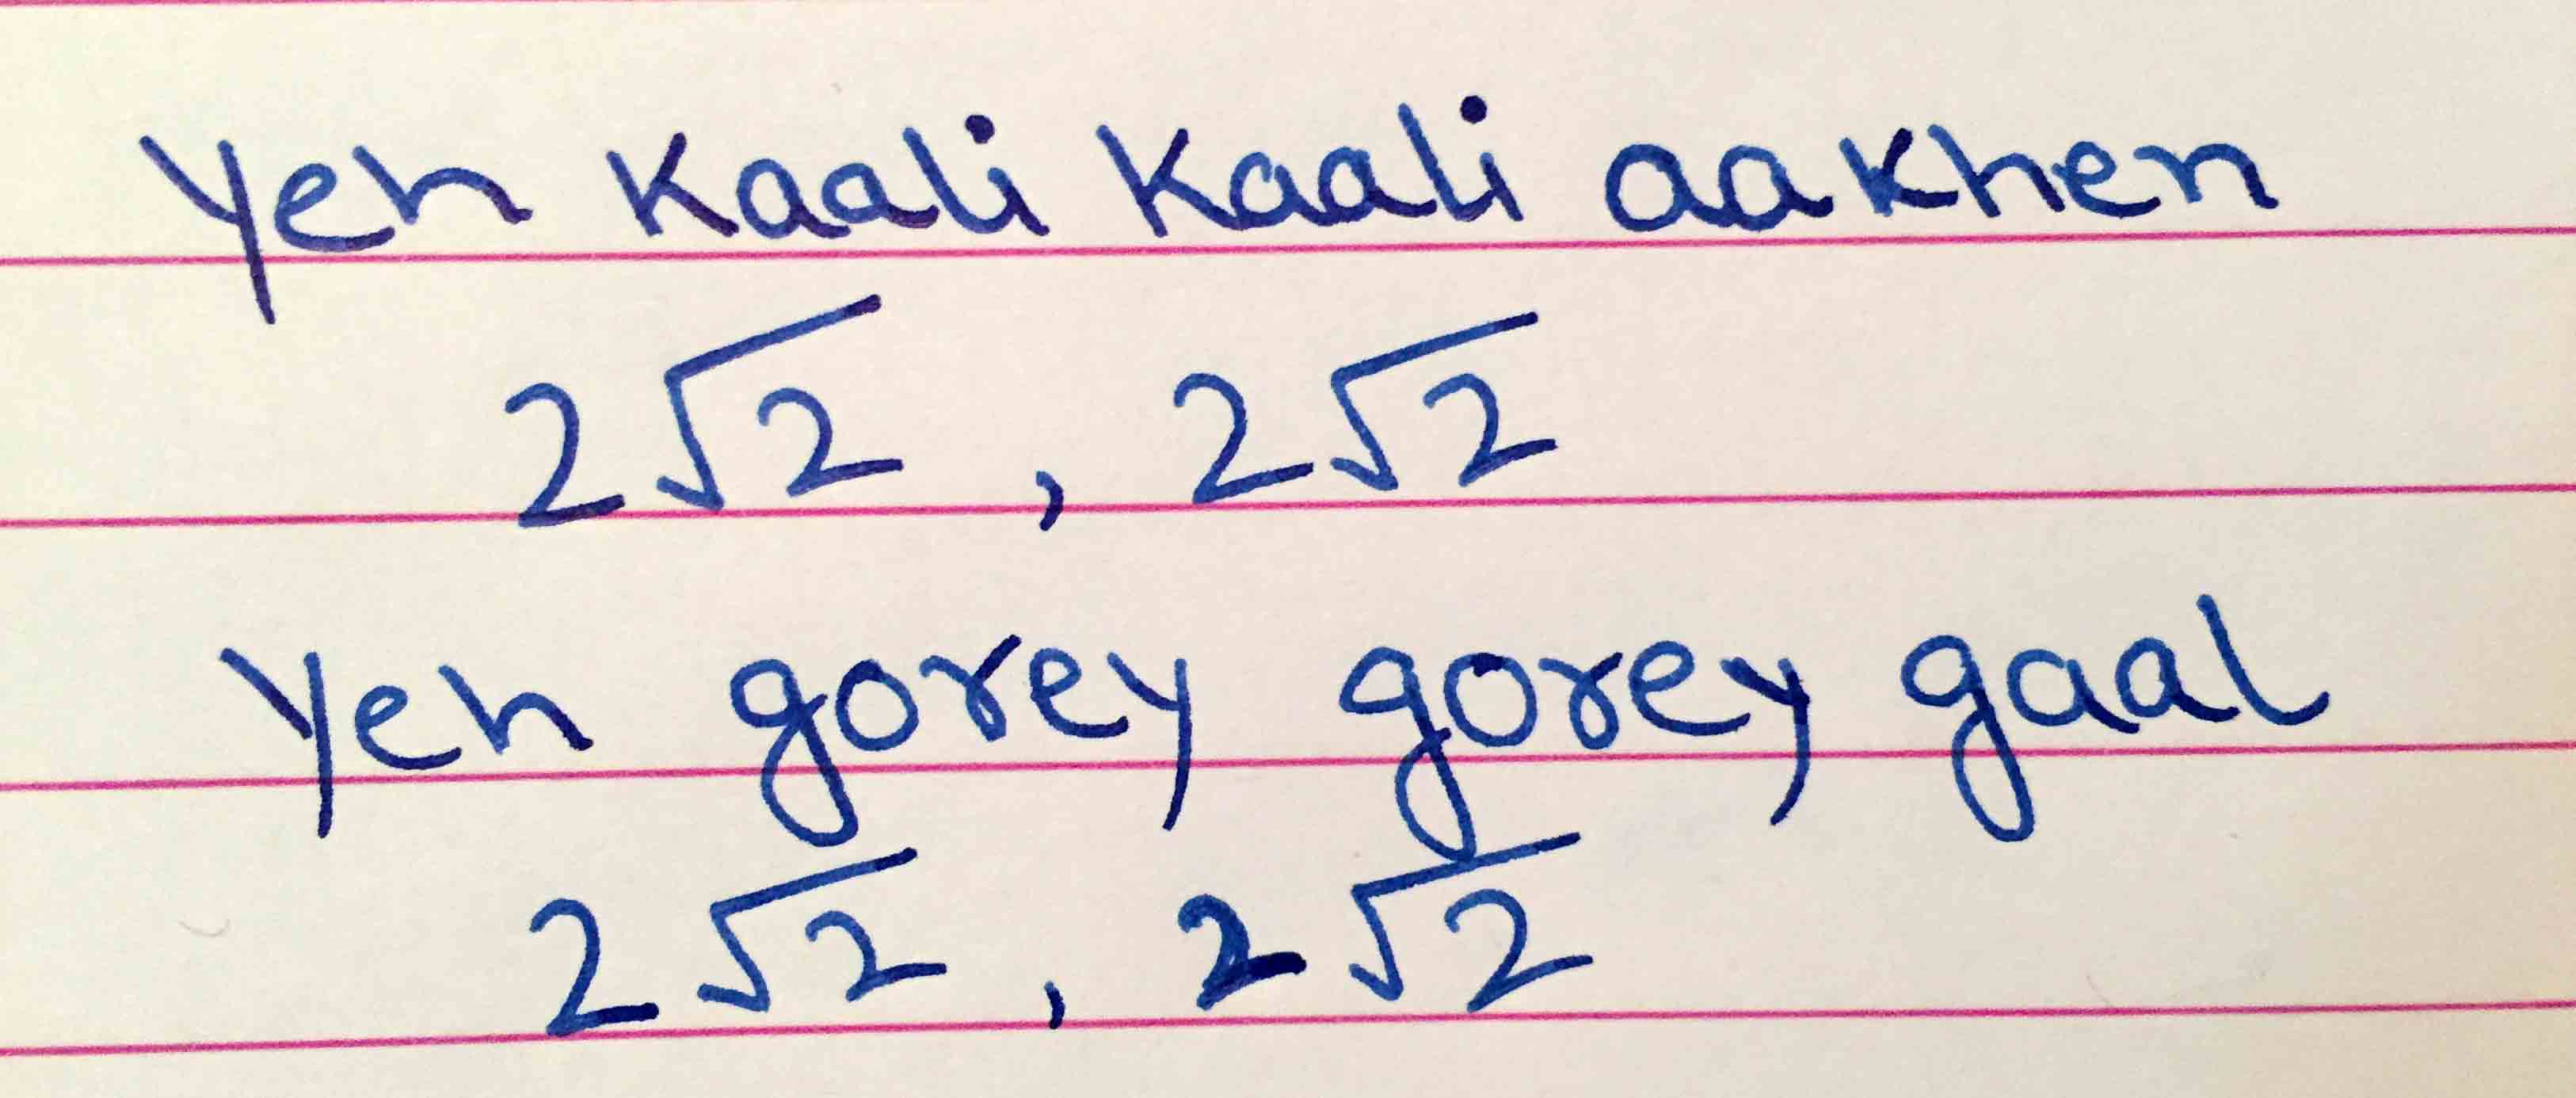 Yeh Kaali Kaali aakhen
2√2 , 2√2
Yeh gorey gorey gaal
2√2 , 2√2